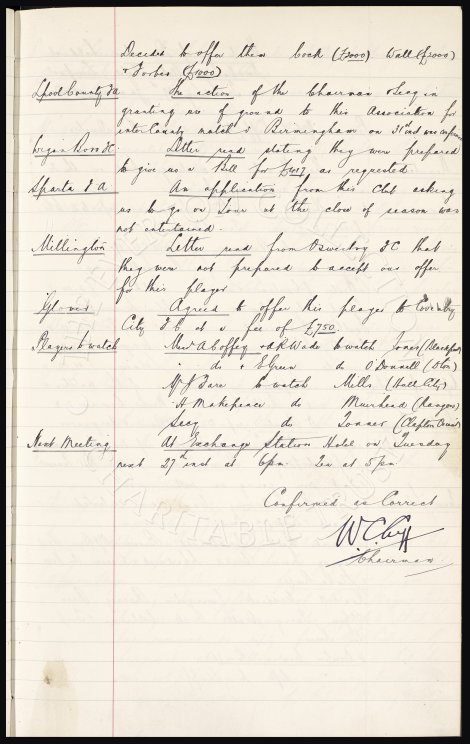 Decided to offer them Cock (£2000) Wall (£2000)
& Forbes (£1000)
Lpool County F A The action of the Chairman & Secy in
granting use of ground to this Association for
inter County match v Birmingham on 31st inst was confirmed
Wigan Boro FC Letter read stating they were prepared
to give us a Bill for £417 as requested.
Sparta F A An application from this Club asking
us to go on Tour at the close of season was
not entertained.
Millington Letter read from Oswestry F C that
they were not prepared to accept our offer
for this player
Glover Agreed to offer this player to Coventry
City F C at a fee of £750.
Players to watch Messrs A Coffey & A R Wade to watch Jones (Blackpool)
do & E Green do O'Donnell (Stoke)
W J to watch Mills (Hull City)
H Makepeace do Muirhead (Rangers)
Secy do Tonner (Clapton Orient)
Next Meeting At Exchange Station Hotel on Tuesday
next 27th inst at 6pm. Tea at 5pm.
Confirmed as Correct
W. C. Cuff
Chairman
CHARITABLE